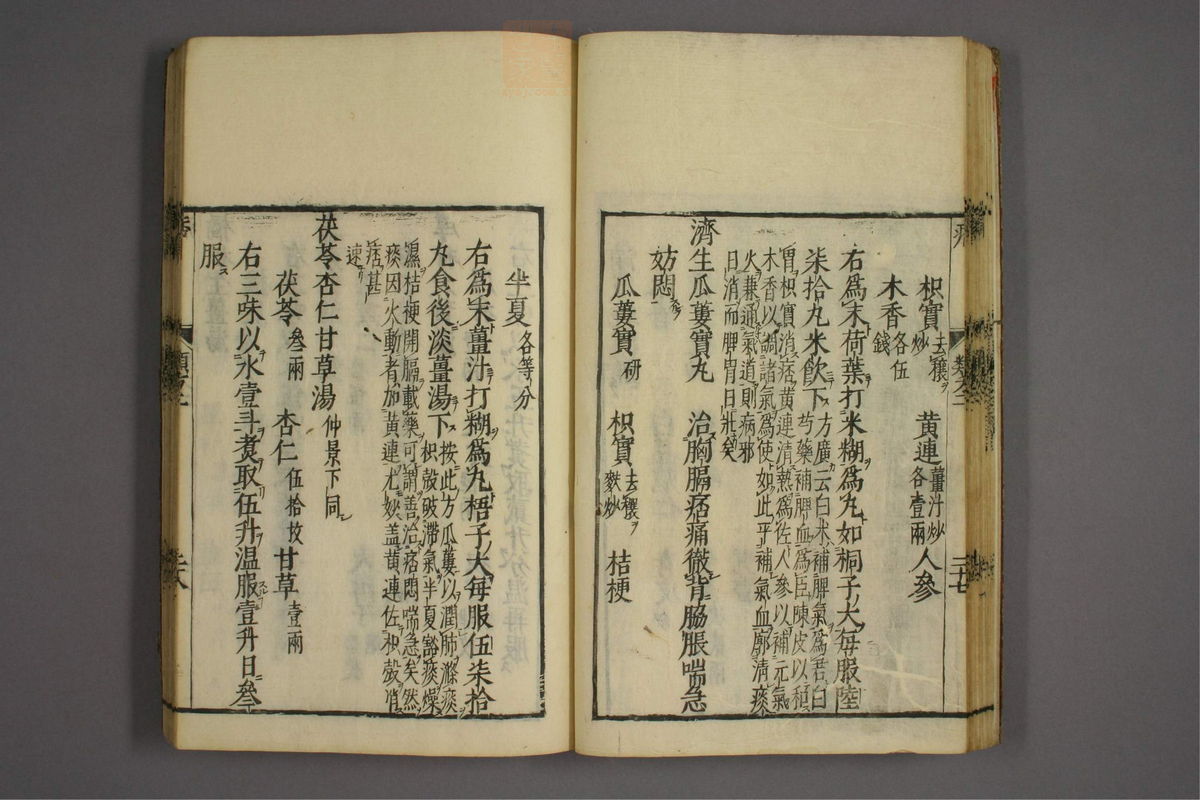 枳實去穰炒 黃連薑汁炒各壹兩 人參
木香各伍錢
右為末荷葉打米糊為丸如桐子大每服陸
柒拾丸米飲下方廣云白朮補脾氣為君白
芍藥補脾血為臣陳皮以和
胃枳實消痞黃連清熱為佐人參以補元氣
木香以調諸氣為使如此乎補氣血廓清痰
火兼通氣道則病邪
日消而脾胃日壯矣
濟生瓜蔞實丸 治胸膈痞痛徹背脇脹喘急
妨悶
瓜蔞實研 枳實去穰麩炒 桔梗
半夏各等分
右為末薑汁打糊為丸梧子大每服伍柒拾
丸食後淡薑湯下按此方瓜蔞以潤肺滌痰
枳殼破滯氣半夏豁痰燥
濕桔梗開膈載藥可謂善治痞悶喘急矣然
痰因火動者加黃連尤妙蓋黃連佐枳殼消
痞甚
速
茯苓杏仁甘草湯仲景下同
茯苓叁兩 杏仁伍拾枚 甘草壹兩
右三味以水壹斗煑取伍升温服壹升日叁
服